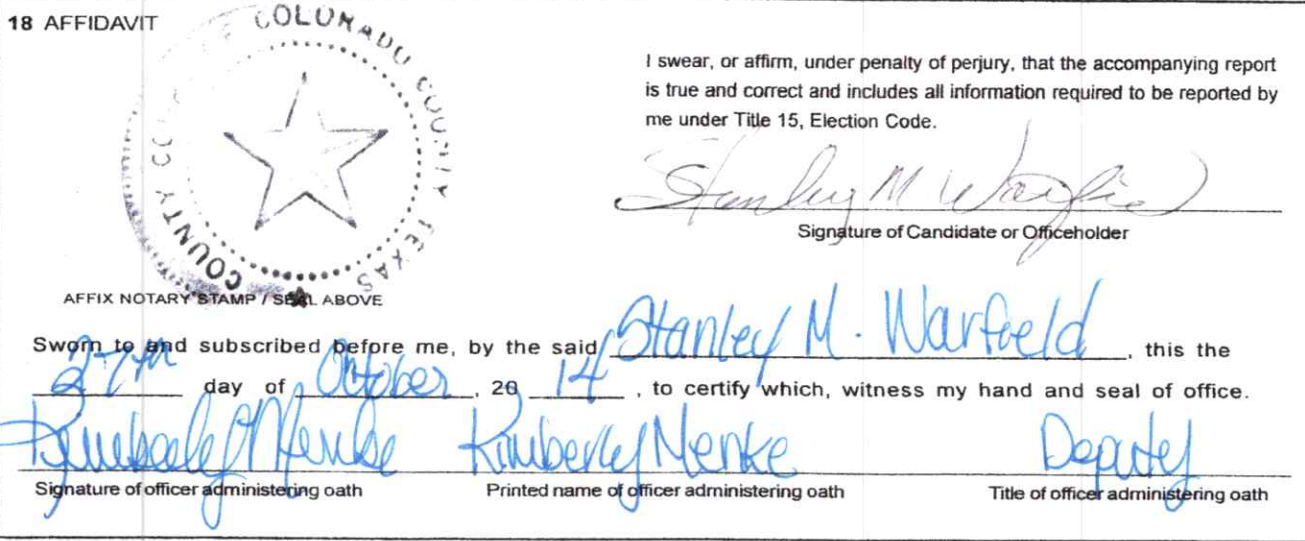 18 AFFIDAVIT
COLORADO COUNTY TEXAS
COUNTY
I swear, or affirm, under penalty of perjury, that the accompanying report
is true and correct and includes all information required to be reported by
me under Title 15, Election Code.
Stanley M Warfield
Signature of Candidate or Officeholder
AFFIX NOTARY STAMP / SEAL ABOVE
Sworn to and subscribed before me, by the said Stanley M. Warfield, this the
27th day of October, 20 14, to certify which, witness my hand and seal of office.
Kimberly Menke Kimberly Menke Deputy
Signature of officer administering oath Printed name of officer administering oath Title of officer administering oath